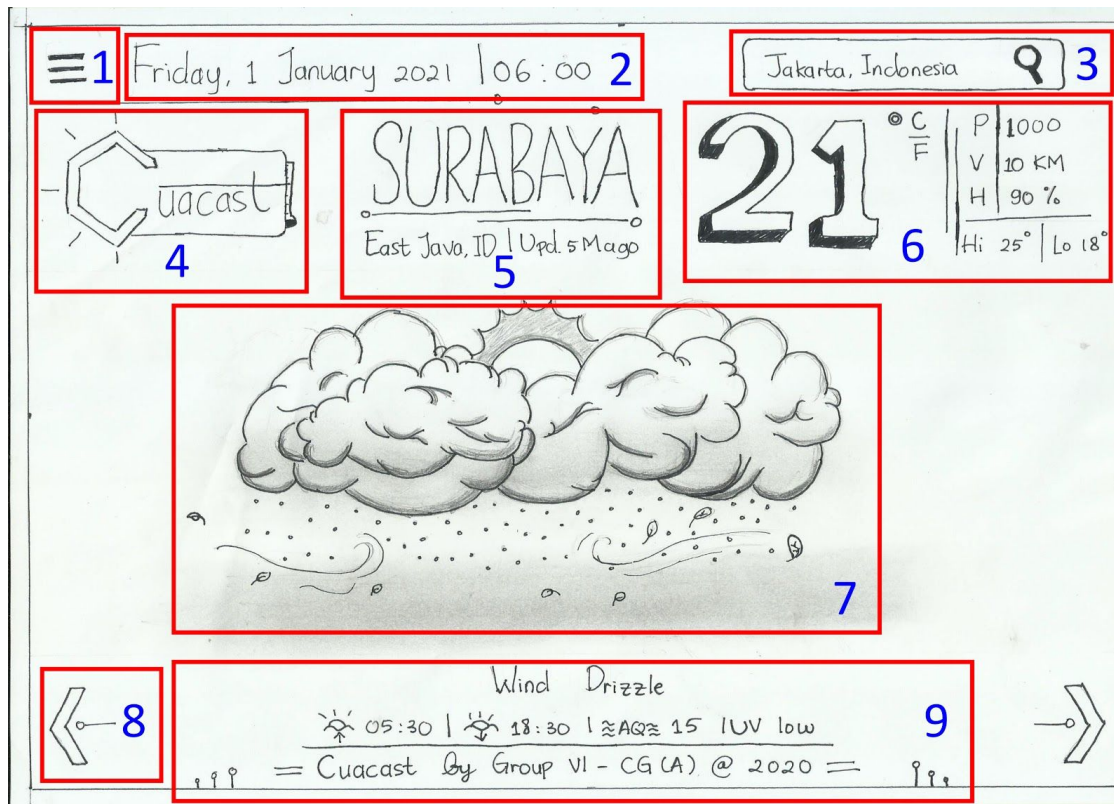 1
Friday, 1 January 2021 | 06:00
2
Jakarta, Indonesia
3
Cuacast
4
SURABAYA
East Java, ID | Upd. 5 M ago
5
21 ° C/F
P | 1000
V | 10 KM
H | 90 %
Hi 25° | Lo 18°
6
7
8
Wind Drizzle
05:30 | 18:30 | ≈AQ≈ 15 | UV low
= Cuacast By Group VI - CG (A) @ 2020 =
9